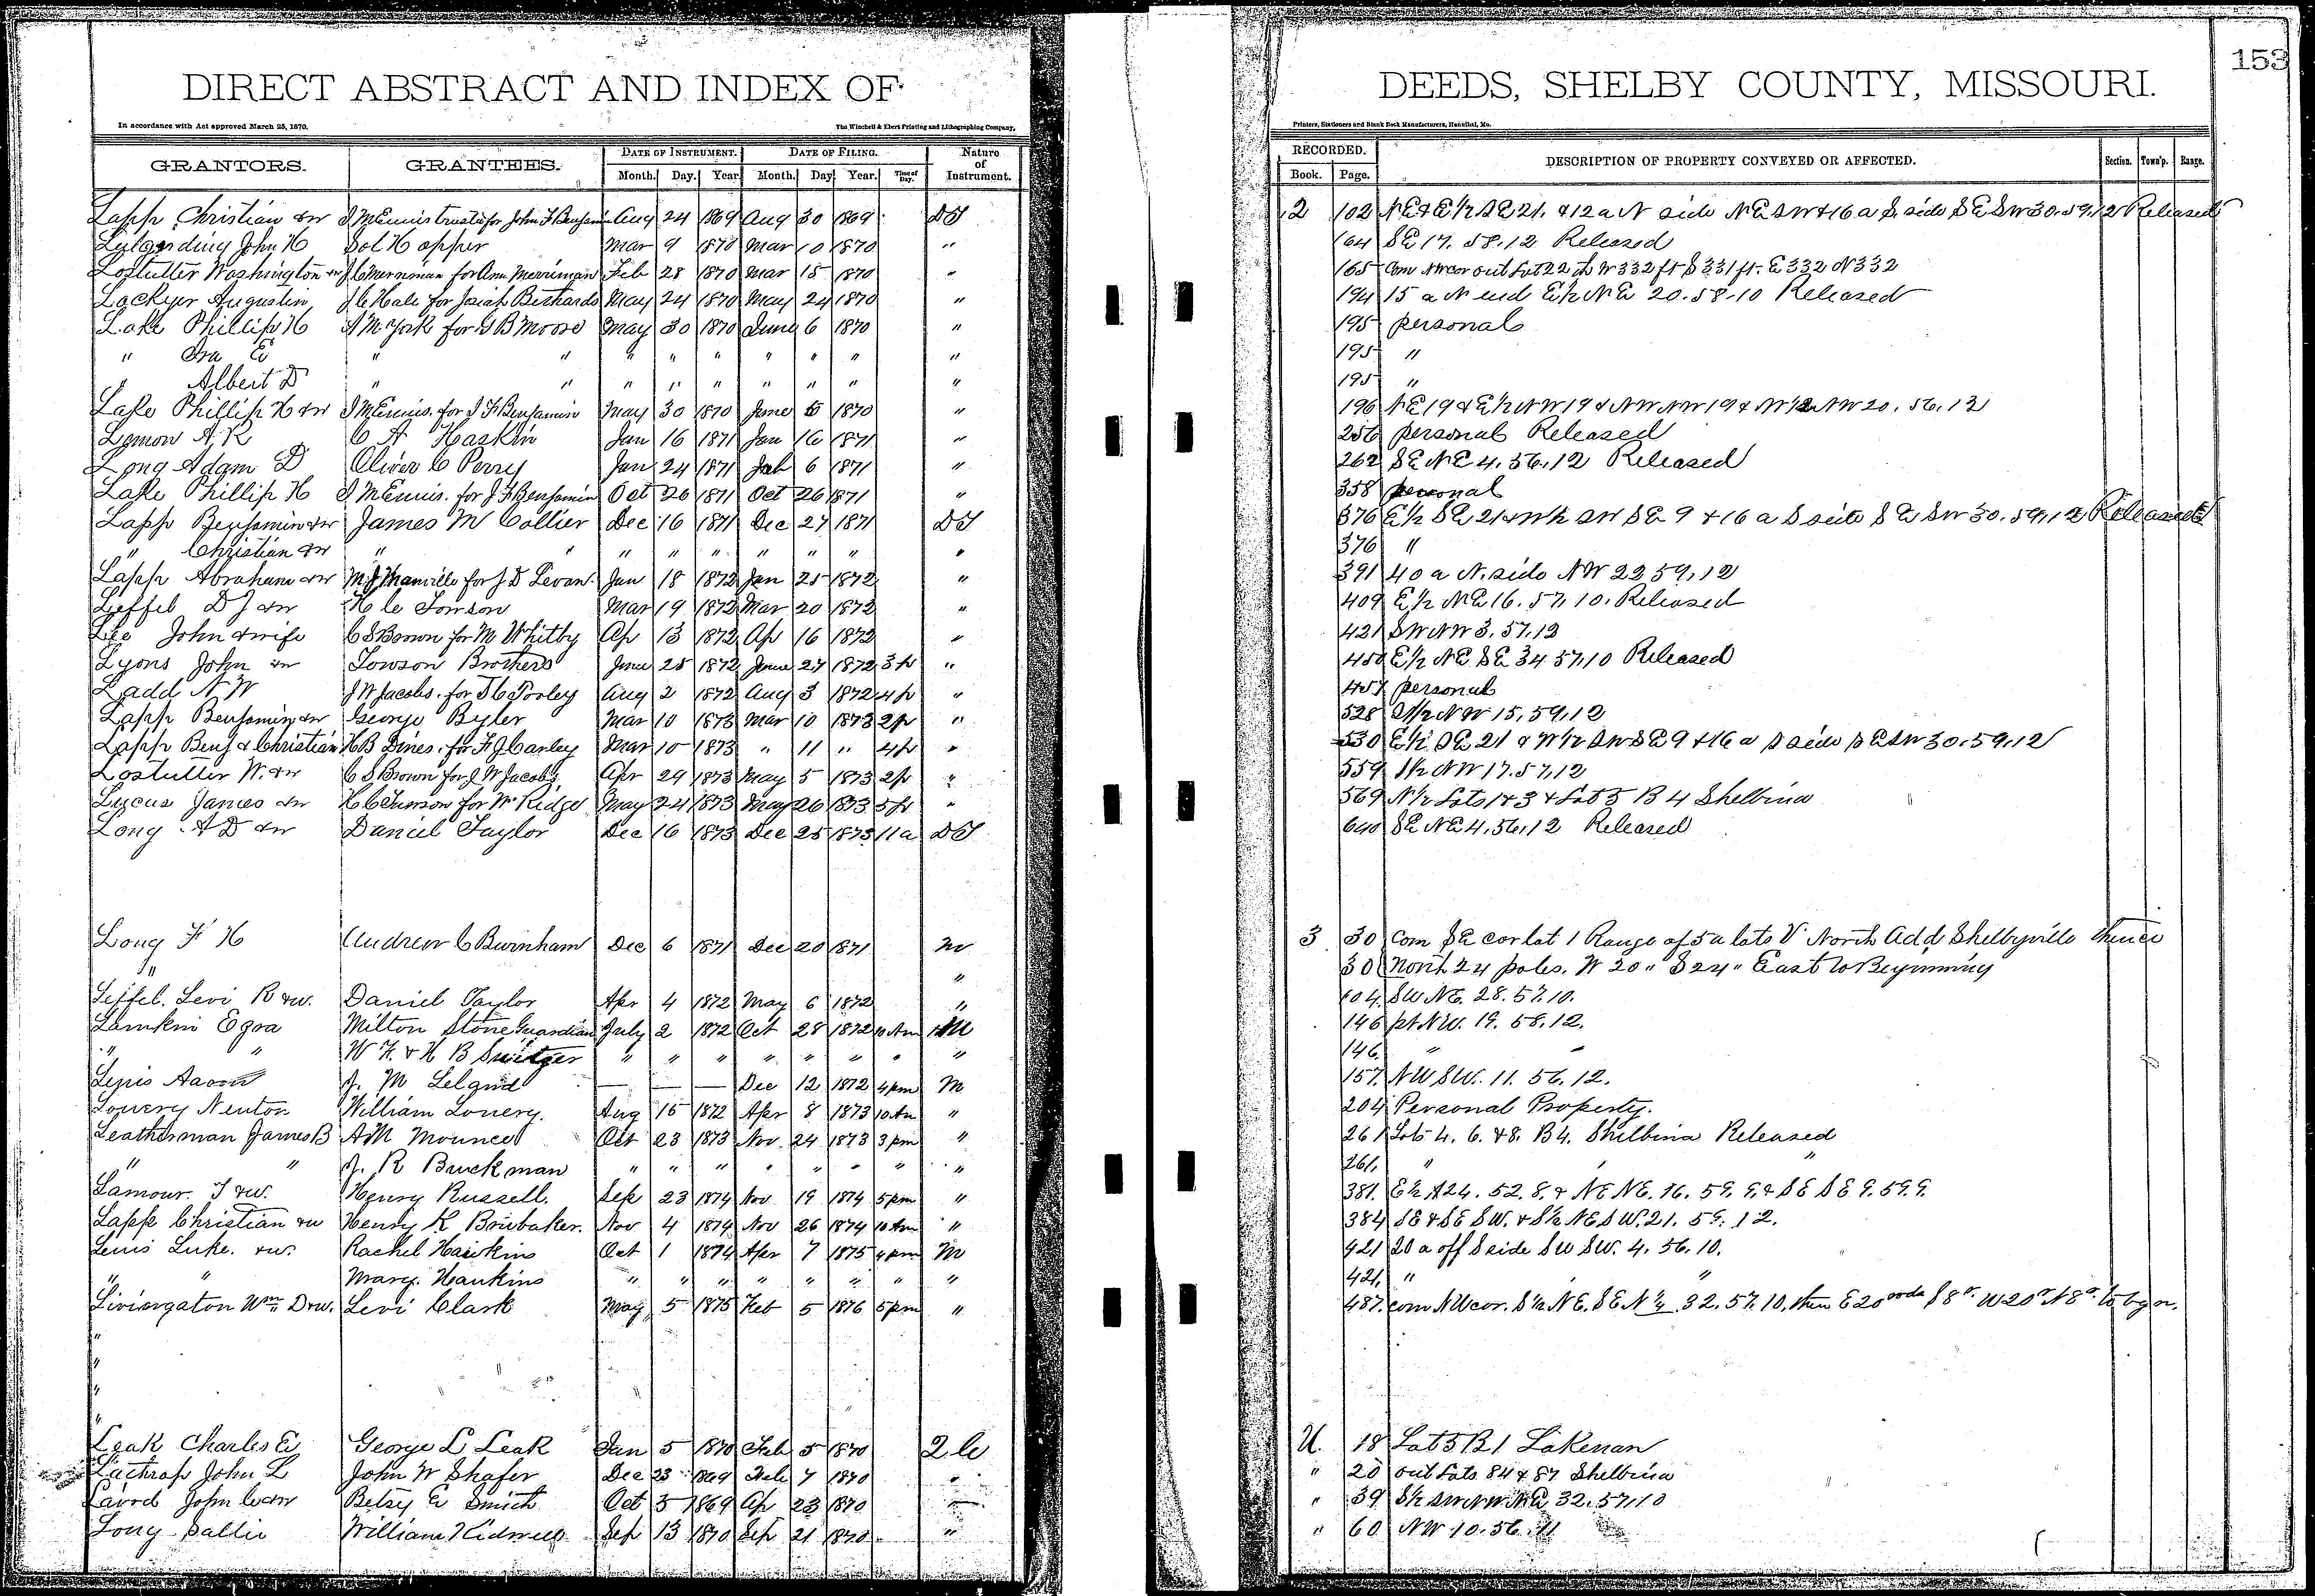 153
DIRECT ABSTRACT AND INDEX OF DEEDS, SHELBY COUNTY, MISSOURI.
In accordance with Act approved March 25, 1870. The Winchell & Ebert Printing and Lithographing Company, Printers, Stationers and Blank Book Manufacturers, Hannibal, Mo.
GRANTORS. GRANTEES. DATE OF INSTRUMENT. DATE OF FILING. Nature of Instrument. RECORDED. DESCRIPTION OF PROPERTY CONVEYED OR AFFECTED. Section. Town'p. Range.
Month. Day. Year. Month. Day. Year. Time of Day. Book. Page.
Lapp Christian &w J M Ennis trustee for John F Benjamin Aug 24 1869 Aug 30 1869 DT 2 102 NE & E½ SE 21. & 12 a N side NE SW & 16 a S. side SE SW 30.59.12 Released
John H Sol Hopper Mar 9 1870 Mar 10 1870 " 164 SE 17. 58.12 Released
Lostutter Washington &w J C Merriman for Ann Merriman Feb 28 1870 Mar 15 1870 " 165 Com NW cor out Lot 22 th W 332 ft S 331 ft. E 332 N 332
Lockyer Augustin J C Hale for Josiah Bethards May 24 1870 May 24 1870 " 194 15 a N end E½ NE 20.58.10 Released
Lake Phillip H A M York for G B Moore May 30 1870 June 6 1870 " 195 personal
" Ira E " " " " " " " " " 195 "
" Albert D " " " " " " " " " 195 "
Lake Phillip H &w J M Ennis. for J F Benjamin May 30 1870 June 6 1870 " 196 NE 19 & E½ NW 19 & NW NW 19 & W½ NW 20, 56, 12
Lemon A. K C A Haskin Jan 16 1871 Jan 16 1871 " 256 personal Released
Long Adam D Oliver C Perry Jan 24 1871 Feb 6 1871 " 262 SE NE 4, 56, 12 Released
Lake Phillip H J M Ennis. for J F Benjamin Oct 26 1871 Oct 26 1871 " 358 personal
Lapp Benjamin &w James M Collier Dec 16 1871 Dec 27 1871 DT 376 E½ SE 21 & W½ SW SE 9 & 16 a S side SE SW 30.59,12 Released
" Christian &w " " " " " " " " " 376 "
Lapp Abraham &w M J Manville for J D Levan. Jan 18 1872 Jan 25 1872 " 391 40 a N. side NW 22 59,12
Leffel D J &w H C Towson Mar 19 1872 Mar 20 1872 " 409 E½ NE 16. 57, 10. Released
Lee John & wife C S Brown for M Whitby Ap 13 1872 Ap 16 1872 " 421 SW NW 3, 57, 12
Lyons John &w Towson Brothers June 25 1872 June 27 1872 3 p " 450 E½ NE SE 34 57,10 Released
Ladd N W J W Jacobs. for J C Tooley Aug 2 1872 Aug 3 1872 4 p " 457 personal
Lapp Benjamin &w George Byler Mar 10 1873 Mar 10 1873 2 p " 528 NW 15, 59, 12
Lapp Benj & Christian H B Dines. for F J Carley Mar 10 1873 " 11 " 4 p " 530 E½ SE 21 & W½ SW SE 9 & 16 a S side SE SW 30.59,12
Lostutter W. &w C S Brown for J W Jacobs Apr 29 1873 May 5 1873 2 p " 559 S½ NW 17. 57, 12
Lucas James &w H C Towson for Wm Ridge May 24 1873 May 26 1873 5 p " 569 N½ Lots 1 & 3 & Lot 5 B 4 Shelbina
Long A D &w Daniel Taylor Dec 16 1873 Dec 25 1873 11 a DT 640 SE NE 4, 56, 12 Released
Long F H Andrew C Burnham Dec 6 1871 Dec 20 1871 M 3 30 Com SE cor lot 1 Range of 5 a lots V North Add Shelbyville thence
" " 30 North 24 poles. W 20 " S 24 " East to Beginning
Leffel. Levi R &w. Daniel Taylor Apr 4 1872 May 6 1872 " 104. SW NE. 28. 57. 10.
Lamkin Ezra Milton Stone Guardian July 2 1872 Oct 28 1872 10 Am M 146 pt NW. 19. 58. 12.
" " W F. & H B Switzer " " " " " " " " 146. " "
Lewis Aaron J. M Leland — — — Dec 12 1872 4 pm M 157. NW SW. 11. 56. 12.
Lowery Newton William Lowery. Aug 15 1872 Apr 8 1873 10 Am " 204 Personal Property.
Leatherman James B A M Mounce Oct 23 1873 Nov. 24 1873 3 pm " 261 Lots 4. 6. & 8. B 4. Shelbina Released
" " J. R Buckman " " " " " " " " 261. " " "
Lamour. J &w. Henry Russell. Sep 23 1874 Nov 19 1874 5 pm " 381. E½ 24. 52. 8, & NE NE. 16. 59. 9, & SE SE 9. 59. 9.
Lapp Christian &w Henry K Brubaker. Nov 4 1874 Nov 26 1874 10 Am " 384 SE & SE SW. & S½ NE SW. 21. 59. 12.
Lewis Luke. &w. Rachel Hawkins Oct 1 1874 Apr 7 1875 4 pm M 421 20 a off S side SW SW. 4. 56. 10.
" " Mary. Hawkins " " " " " " " " 421. " "
Livingston Wm D &w. Levi Clark May 5 1875 Feb 5 1876 5 pm " 487. com NW cor. S½ NE. SE N¼ 32. 57. 10, then E 20 rods S 8 r. W 20 r N 8 r. to bgn.
"
"
"
"
Leak Charles E George L Leak Jan 5 1870 Feb 5 1870 2 C U. 18 Lot 5 B 1 Lakenan
Lathrop John L John W Shafer Dec 23 1869 Feb 7 1870 " " 20 out Lots 84 & 87 Shelbina
Laird John C &w Betsy E Smith Oct 5 1869 Ap 23 1870 " " 39 S½ SW NW NE 32. 57, 10
Long Sallie William Kidwell Sep 13 1870 Sep 21 1870 " " 60 NW 10. 56. 11